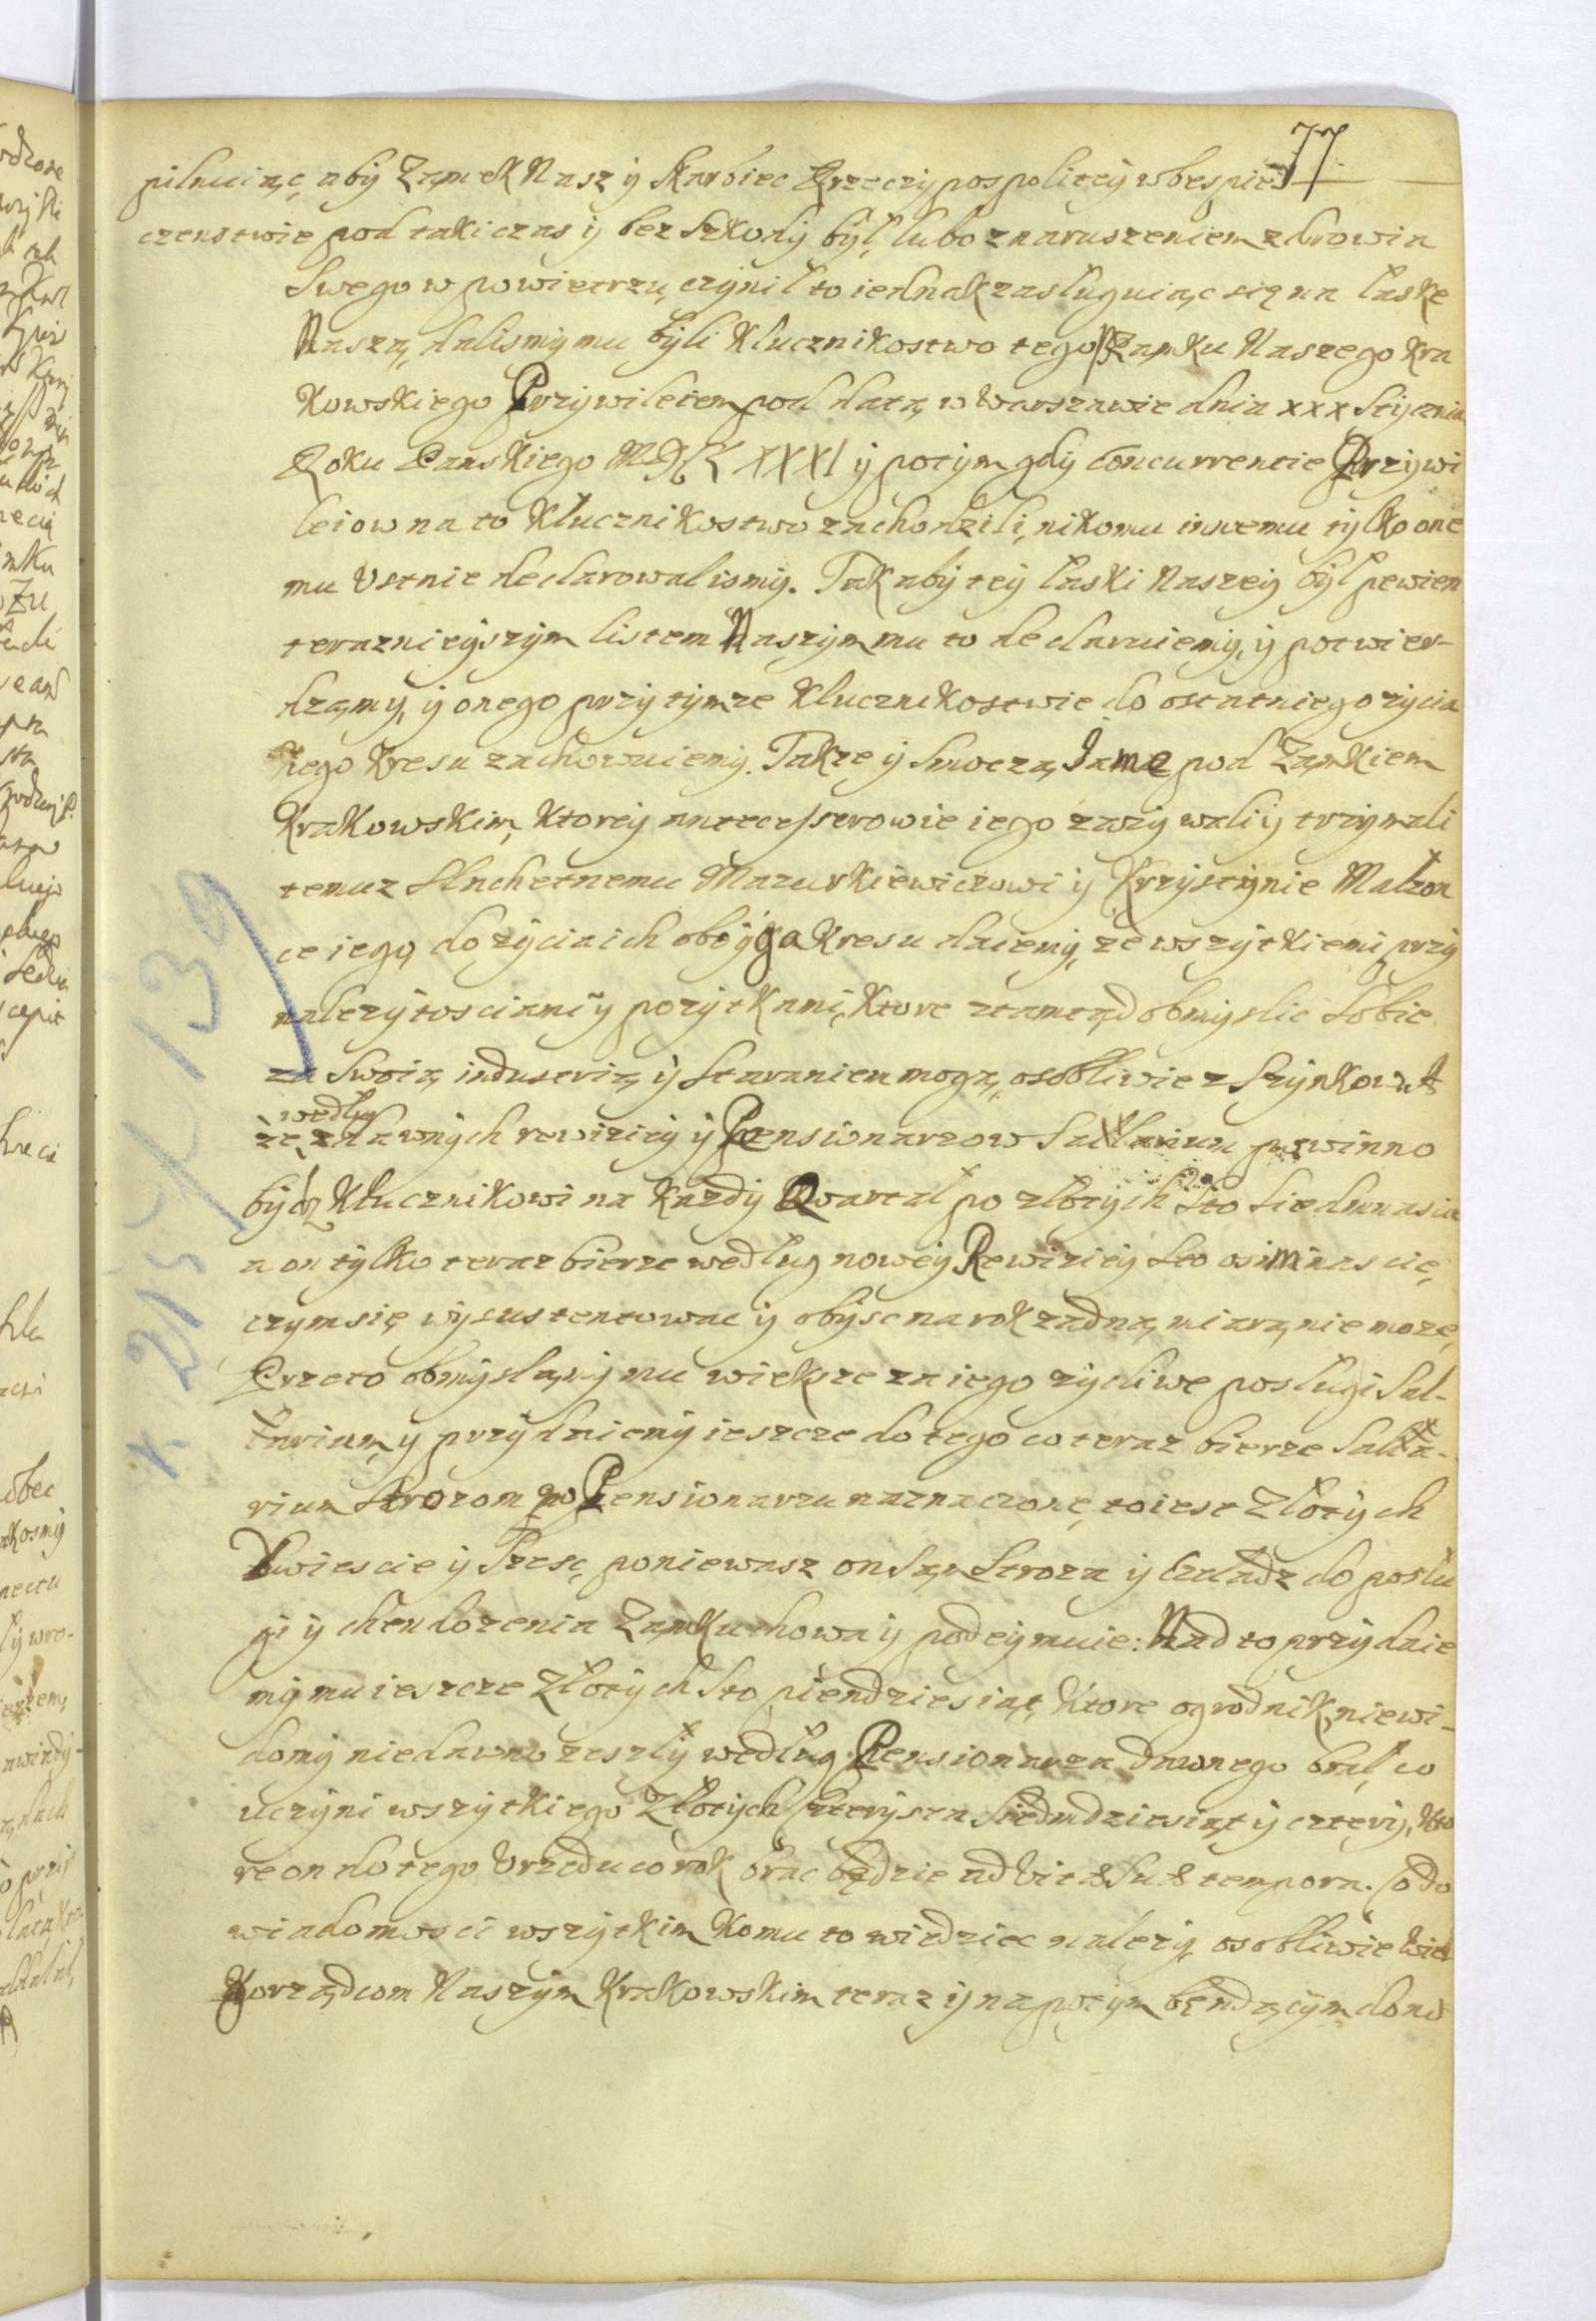 77
pilnuiąc aby Zamek Nasz y Skarbiec Rzeczypospolitey w bespie
czenstwie pod taki czas y bez Szkody był, lubo z naruszeniem zdrowia
Swego w powietrzu, czynił to iednak zasługuiąc się na łaskę
Naszą, dalismy mu byli Klucznikostwo tego Zamku Naszego Kra
kowskiego Przywileiem pod datą w Warszawie dnia xxx Stycznia
Roku Panskiego y potym gdy Concurrentie Przywi
leiow na to Klucznikostwo zachodzili, nikomu inszemu tylko one
mu Ustnie declarowalismy. Tak aby tey łaski Naszey był pewien
teraznieyszym listem Naszym mu to declaruiemy, y potwier-
dzamy, y onego przy tymze Klucznikostwie do ostatniego zycia
iego kresu zachowuiemy. Takze y Smoczą Jamę pod Zamkiem
Krakowskim, Ktorey antecesserowie iego zazywali y trzymali
temuz Slachetnemu Mazurkiewiczowi y Krzystynie Małzon
ce iego, do zycia ich oboyga kresu daiemy, ze wszytkiemi przy
nalezytosciami y pozytkami, Ktore ztamtąd obmyslic Sobie
za Swoią industrią y Staraniem mogą, osobliwie z Szynkow. A
ze według dawnych rewiziey y Pensionarzow Sallarium powinno
bydz Klucznikowi na Kazdy Qwartał po złotych Sto Siedmnascie
a on tylko teraz bierze według nowey Rewiziey Sto osimnascie,
czym się wysustentowac y obysc na rok zadną miarą nie moze,
Przeto obmyslaiąc mu większe za iego zycliwe posługi Sal-
larium, y przydaiemy ieszcze do tego co teraz bierze Salla-
rium Strozom po Pensionarzu naznaczone, to iest Złotych
Dwiescie y Szesc, poniewasz on Sam Stroza y Czeladz do poslu
gi y chendozenia Zamku chowa y podeymuie: Nad to przydaie
my mu ieszcze Złotych Sto piendziesiąt, Ktore ogrodnik niewi-
domy niedawno zeszły według Pensionarza dawnego brał, co
uczyni wszytkiego Złotych Czterysta Siedmdziesiąt y cztery, Kto
re on do tego Urzędu co rok brac będzie ad Vitae Suae tempora. Co do
wiadomosci wszytkim Komu to wiedziec nalezy, osobliwie Wiel
korządcom Naszym Krakowskim teraz y napotym będącym dono
K 215/K/139